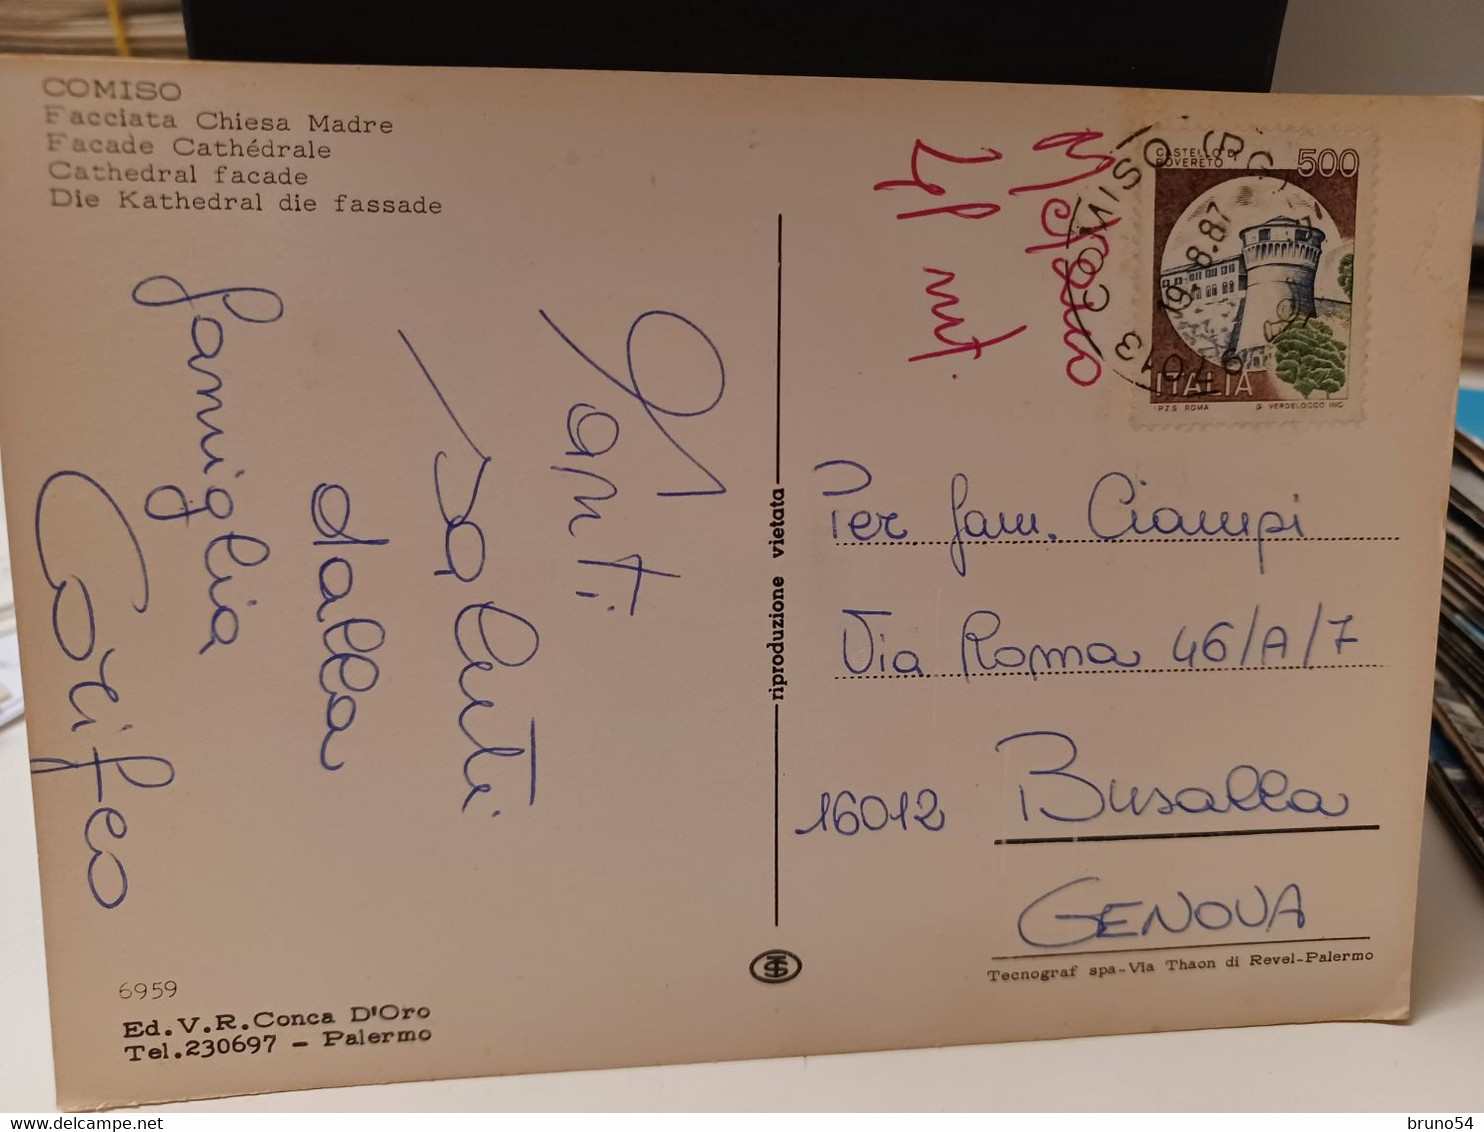 COMISO
Facciata Chiesa Madre
Facade Cathédrale
Cathedral facade
Die Kathedral die fassade
Tanti
Saluti
dalla
famiglia
Corifeo
6959
Ed.V.R.Conca D'Oro
Tel.230697 - Palermo
riproduzione vietata
CASTELLO DI
ROVERETO
500
ITALIA
I.P.Z.S. ROMA
G. VERDELOCCO INC.
COMISO (RG)
19.8.87
97013
Per fam. Ciampi
Via Roma 46/A/7
16012 Busalla
GENOVA
Tecnograf spa-Via Thaon di Revel-Palermo
bruno54